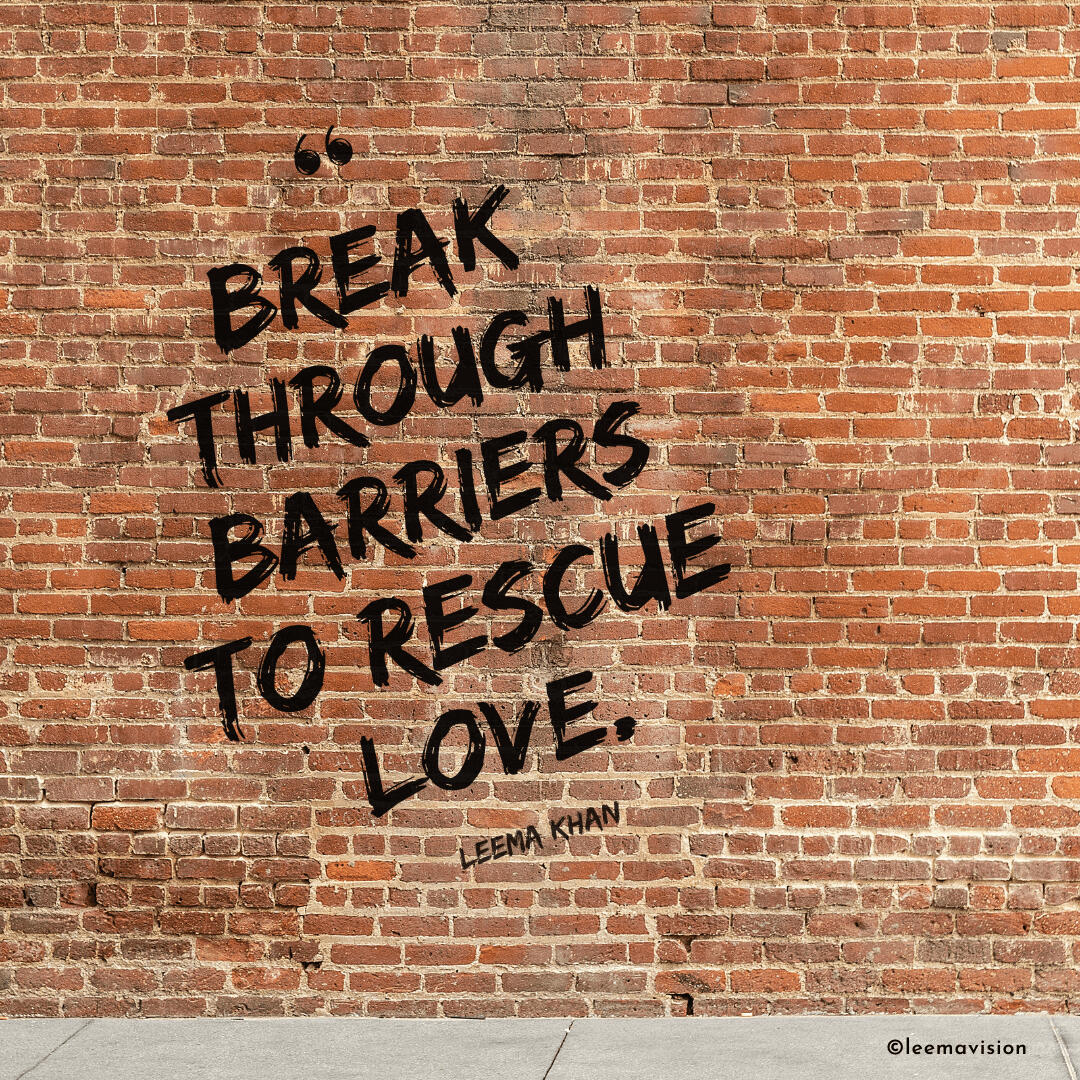 “
BREAK
THROUGH
BARRIERS
TO RESCUE
LOVE.
LEEMA KHAN
©leemavision